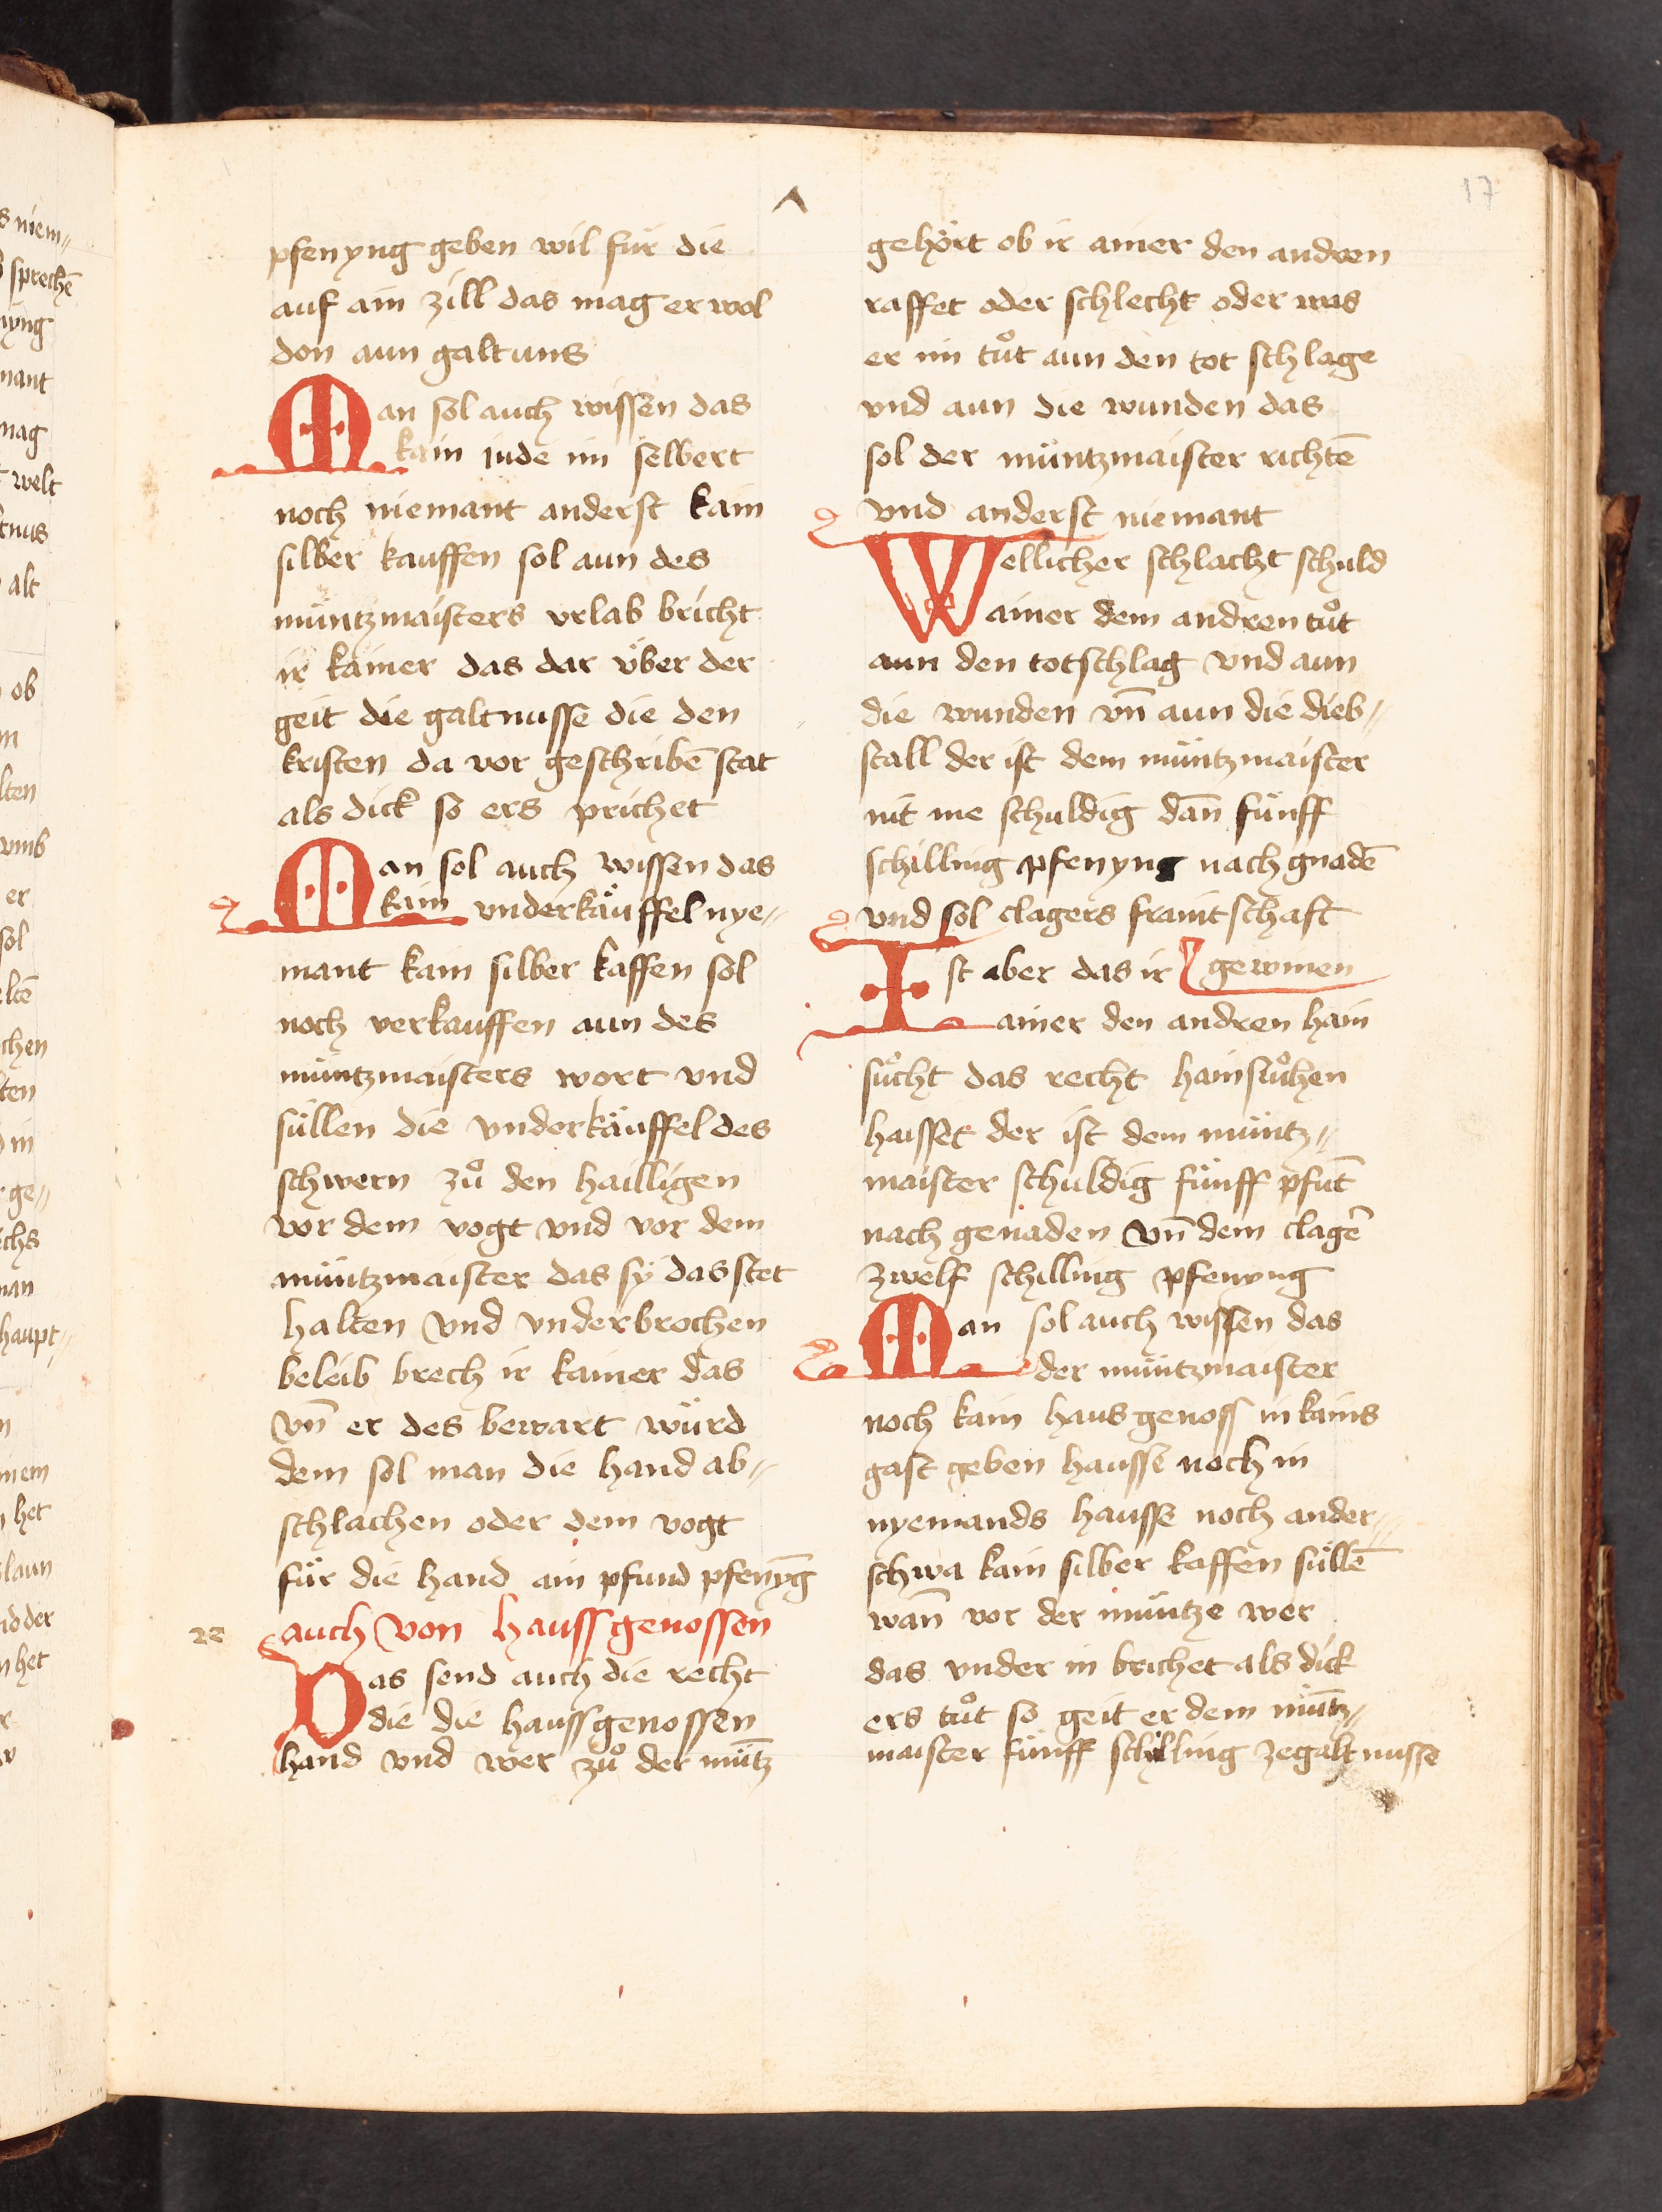 17
pfenyng geben wil für die
auf ain zill das mag er wol
don aun galtuns
Man sol auch wissen das
kain jude im selbert
noch niemant anderst kain
silber kauffen sol aun des
müntzmaisters vrlab bricht
ir kainer das dar über der
geit die galtnusse die den
kristen da vor geschribē stat
als dick so ers prichet
Man sol auch wissen das
kain vnderkäuffel nye〃
mant kain silber kaffen sol
noch verkauffen aun des
müntzmaisters wort vnd
süllen die vnderkäuffel des
schwern zuͦ den hailligen
vor dem vogt vnd vor dem
müntzmaister das sÿ das stet
halten vnd vnderbrochen
beleib brech ir kainer das
vn̄ er des bewart würd
dem sol man die hand ab〃
schlachen oder dem vogt
für die hand ain pfund pfenyg̅
22 auch von haussgenossen
Das send auch die recht
die die haussgenossen
hand vnd wer zuͦ der mütz̅
gehört ob ir ainer den andren
raffet oder schlecht oder was
er im tuͦt aun den tot schlage
vnd aun die wunden das
sol der müntzmaister richtē
vnd anderst niemant
Wellicher schlacht schuld
ainer dem andren tuͦt
aun den totschlag vnd aun
die wunden vn̄ aun die dieb〃
stall der ist dem müntzmaister
nit me schuldig dan̄ fünff
schilling pfenyng nach gnadē
vnd sol clagers fraintschaft
Ist aber das ir gewinen
ainer den andren hain
suͦcht das recht hainsuͦhen
haisset der ist dem müntz〃
maister schuldig fünff pfūt
nach genaden vn̄ dem clage͛
zwelf schilling pfenyng
Man sol auch wissen das
der müntzmaister
noch kain hausgenoss in kains
gast geben hausse noch in
nyemands hausse noch ander〃
schwa kain silber kaffen süllē
wan̄ vor der müntze wer
das vnder in brichet als dick
ers tuͦt so geit er dem mütz̅〃
maister fünff schilling zegaltnusse